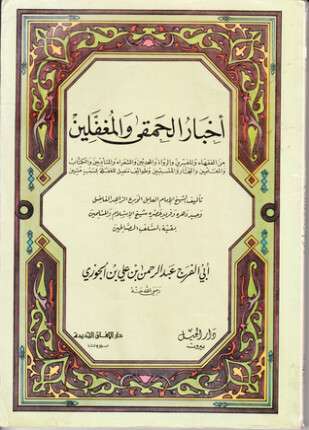 أخبار الحمقى والمغفلين
من الفقهاء والمفسرين والرواة والمحدثين والشعراء والمتأدبين والكتاب
والمعلمين والتجار والمتسببين وطوائف تتصل للغفلة بسبب متين
تأليف الشيخ الإمام العالم الورع الزاهد الفاضل
وحيد دهره وفريد عصره شيخ الإسلام والمسلمين
بقية السلف الصالحين
أبي الفرج عبد الرحمن بن علي بن الجوزي
رحمه الله
دار الجيل
بيروت
دار الآفاق الجديدة
بيروت